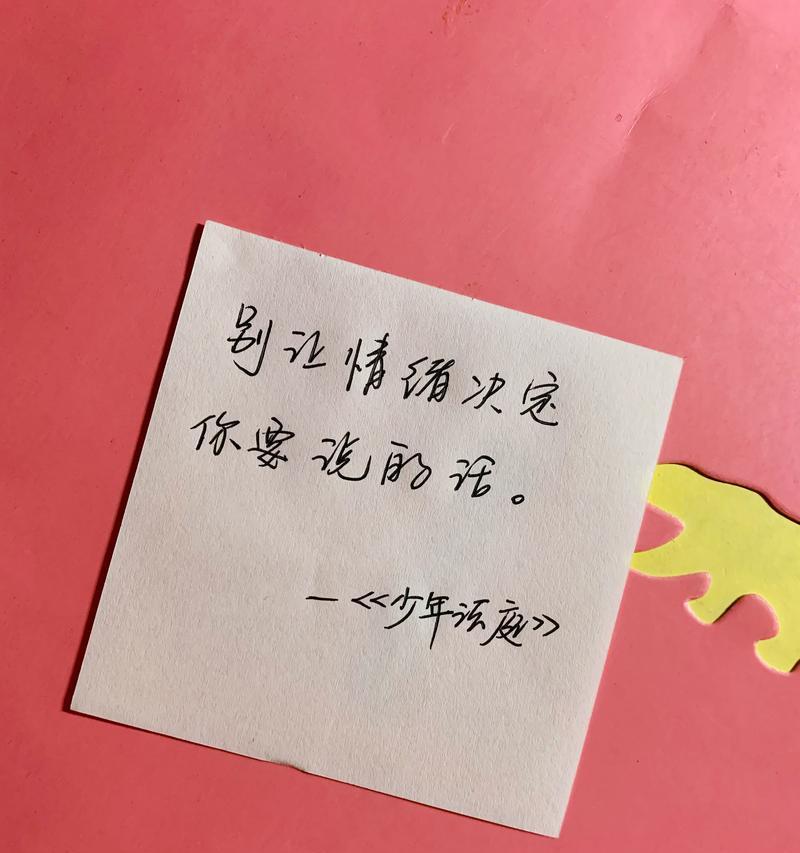 别让情绪决定
你要说的话。
—《少年法庭》